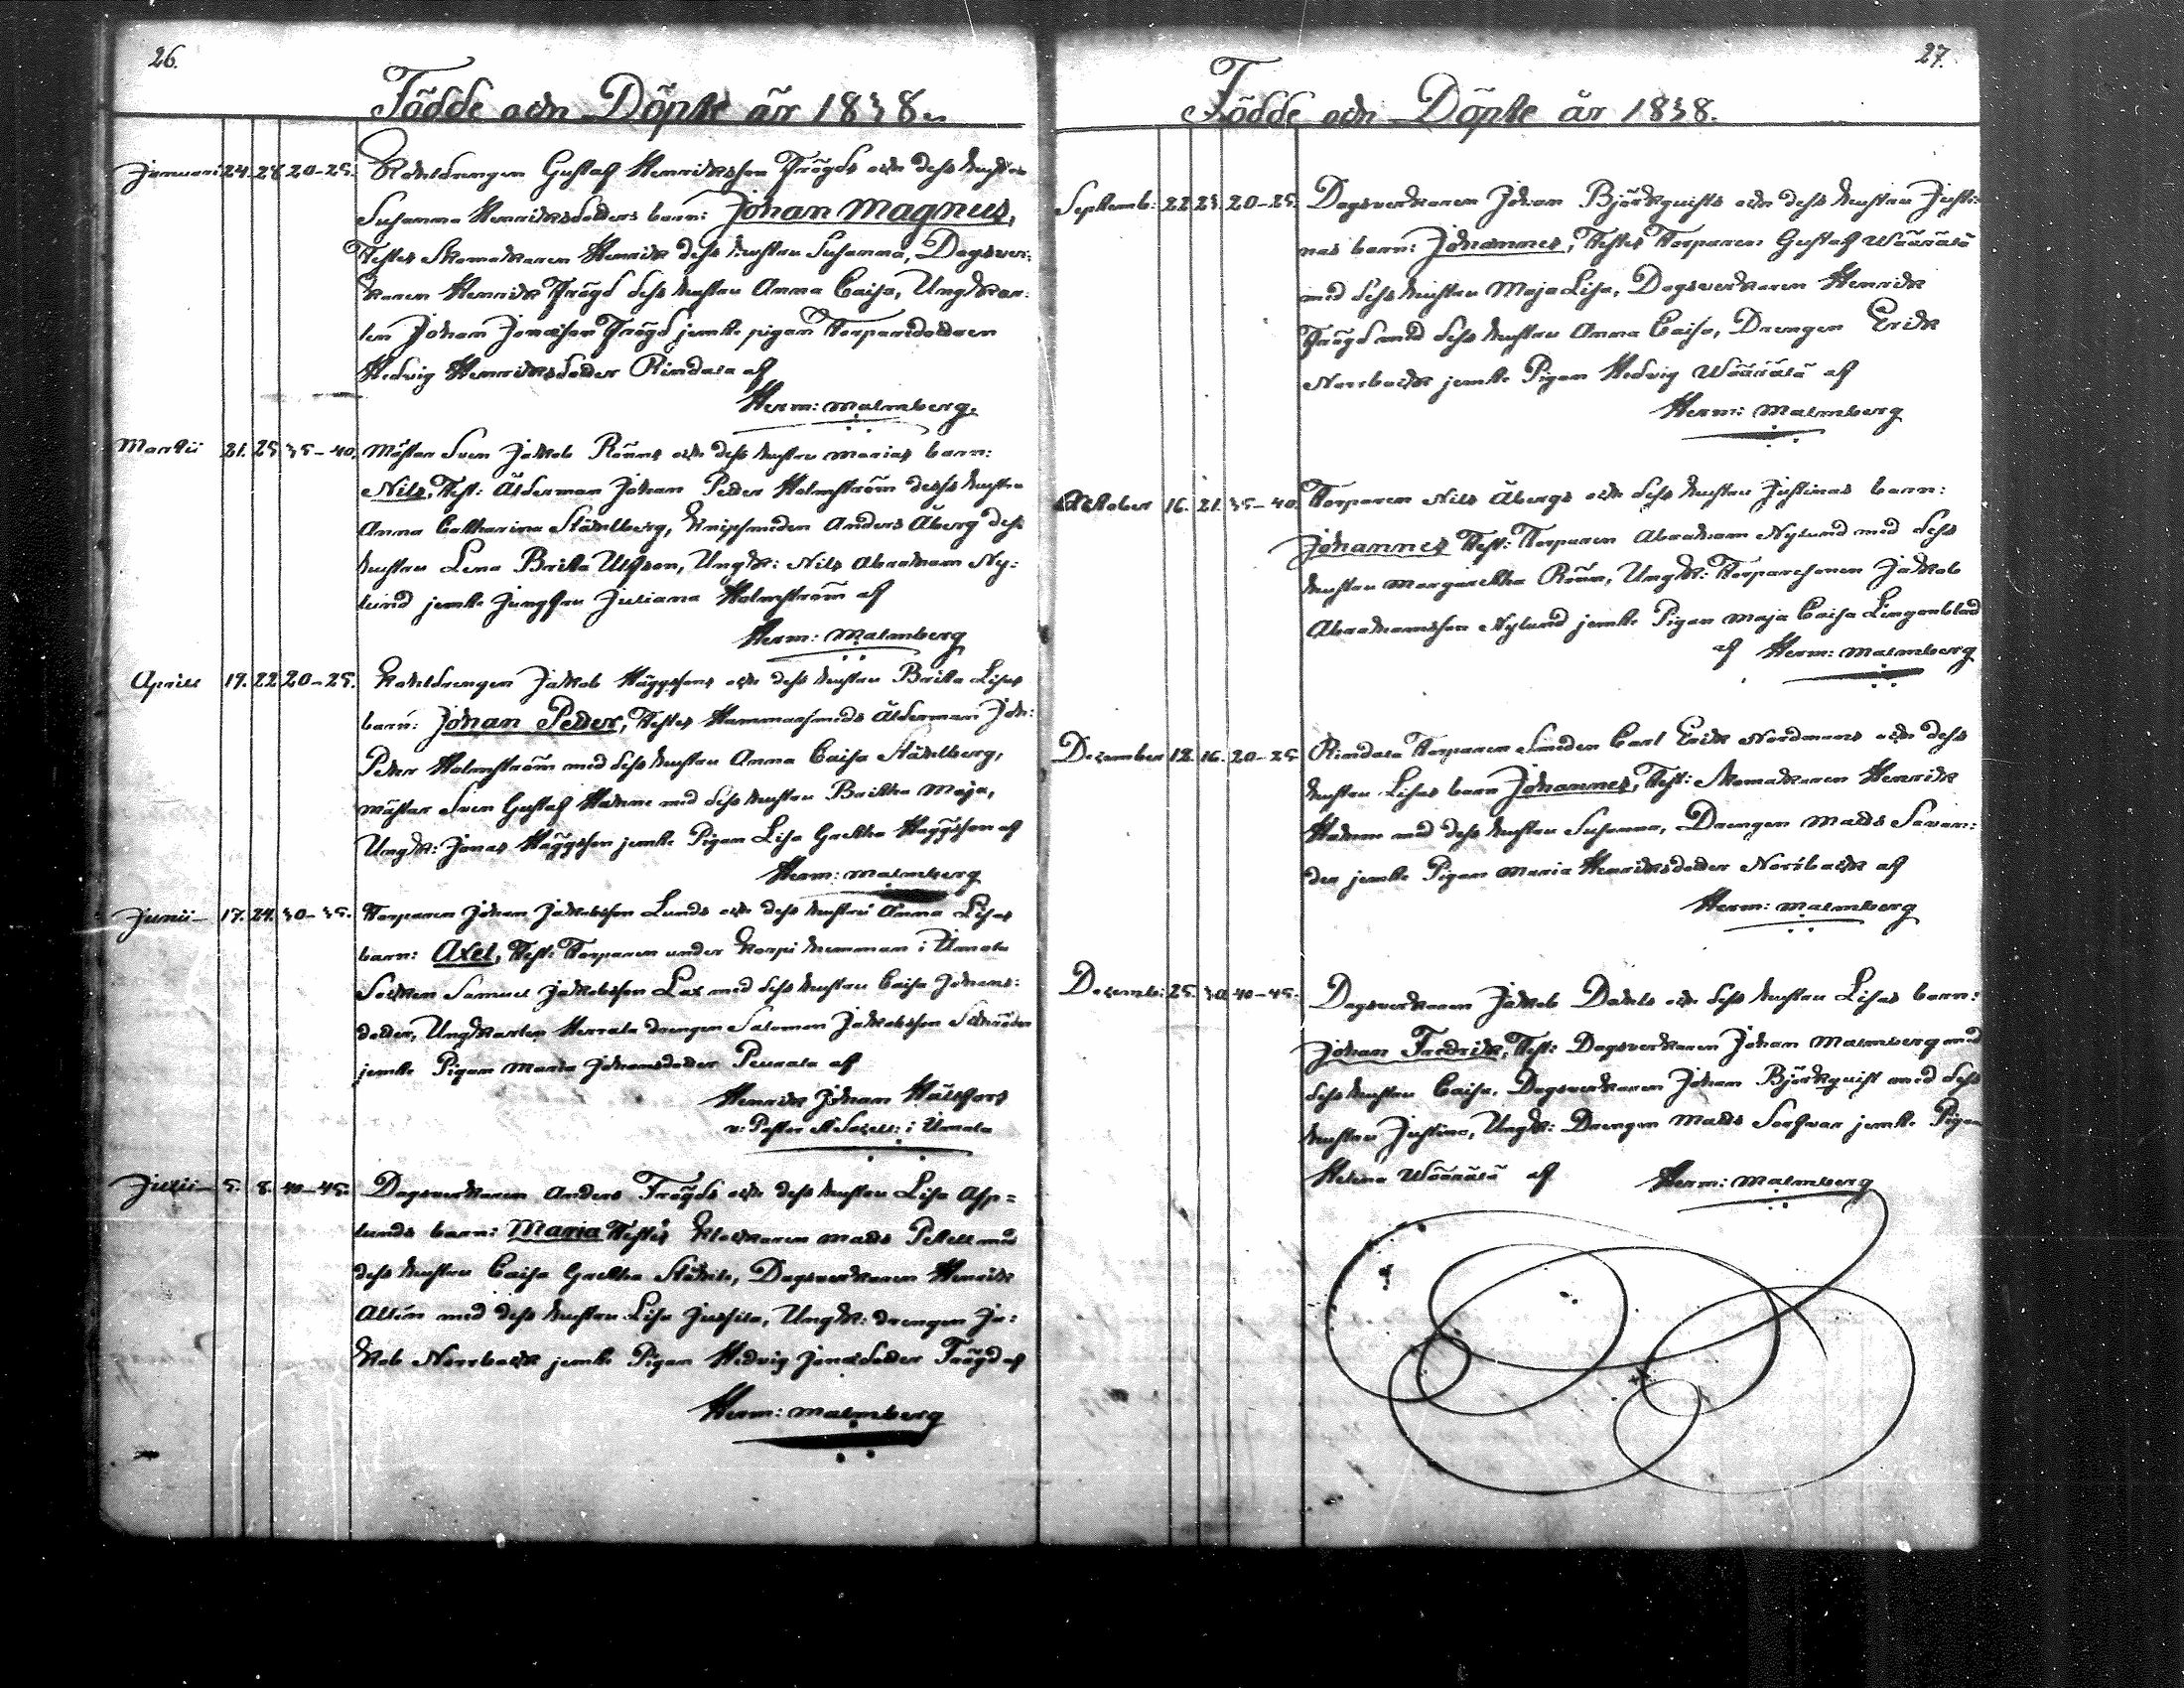 26.
Födde och Döpte år 1838.
Januari 24. 28. 20-25. Kohldrengen Gustaf Henriksson Frögds och dess hustru
Susanna Henriksdotters barn: Johan Magnus,
Testes Skomakaren Henrik dess hustru Susanna, Dagsver:
karen Henrik Frögd dess hustru Anna Caisa, Ungkar:
len Johan Jonasson Frögd jemte pigan Torparedottren
Hedvig Henriksdotter Rindala af
Herm: Malmberg.
Martii 21. 25. 35-40. Mäster Sven Jakob Rönns och dess hustru Marias barn:
Nils, Test: Ålderman Johan Petter Holmström dess hustru
Anna Catharina Ståhlberg, Knipsmeden Anders Åberg dess
hustru Lena Britta Ulfson, Ungk: Nils Abraham Ny:
lund jemte Jungfru Juliana Holmström af
Herm: Malmberg
Aprill 19. 22. 20-25. Kohldrengen Jakob Häggssons och dess hustru Britta Lisas
barn: Johan Petter, Testes Hammarsmeds Ålderman Joh:
Petter Holmström med dess hustru Anna Caisa Ståhlberg,
Mäster Sven Gustaf Hahne med dess hustru Britta Maja,
Ungk: Jonas Häggsson jemte Pigan Lisa Gretha Häggsson af
Herm: Malmberg
Junii 17. 24. 30-35. Torparen Johan Jakobsson Lunds och dess hustru Anna Lisas
barn: Axel, Test: Torparen under Korpi hemman i Ürnola
Socken Samuel Jakobsson Lax med dess hustru Caisa Johans:
dotter, Ungkarlen Herrala drengen Salomon Jakobsson
jemte Pigan Maria Johansdotter Peurala af
Henrik Johan Hällfors
v: Pastor
Julii 5. 8. 40-45. Dagsverkaren Anders Frögds och dess hustru Lisa Asp=
lunds barn: Maria Testes Klockaren Matts Petell med
dess hustru Caisa Gretha Ståhle, Dagsverkaren Henrik
Altén med dess hustru Lisa Jussila, Ungk: drengen Ja:
kob Norrback jemte Pigan Hedvig Jonasdotter Frögd af
Herm: Malmberg
27.
Födde och Döpte år 1838.
Septemb: 22. 23. 20-25. Dagsverkaren Johan Björkquists och dess hustru Justi:
nas barn: Johannes, Testes Torparen Gustaf Wäärälä
med dess hustru Maja Lisa, Dagsverkaren Henrik
Frögd med dess hustru Anna Caisa, Drengen Erik
Norrback jemte Pigan Hedvig Wäärälä af
Herm: Malmberg
Oktober 16. 21. 35-40. Torparen Nils Åbergs och dess hustru Justinas barn:
Johannes Test: Torparen Abraham Nylund med dess
hustru Margaretha Rönn, Ungk: Torparesonen Jakob
Abrahamsson Nylund jemte Pigan Maja Caisa Lingonblad
af Herm: Malmberg
December 12. 16. 20-25. Rindala Torparen Smeden Carl Erik Nordmans och dess
hustru Lisas barn Johannes, Test: Skomakaren Henrik
Hahne med dess hustru Susanna, Drengen Matts Savon:
der jemte Pigan Maria Henriksdotter Norrback af
Herm: Malmberg
Decemb: 25. 30. 40-45. Dagsverkaren Jakob Dahls och dess hustru Lisas barn:
Johan Fredrik, Test: Dagsverkaren Johan Malmberg med
dess hustru Caisa, Dagsverkaren Johan Björkquist med dess
hustru Justina, Ungk: Drengen Matts Sorfvar jemte Pigan
Helena Wäärälä af Herm: Malmberg